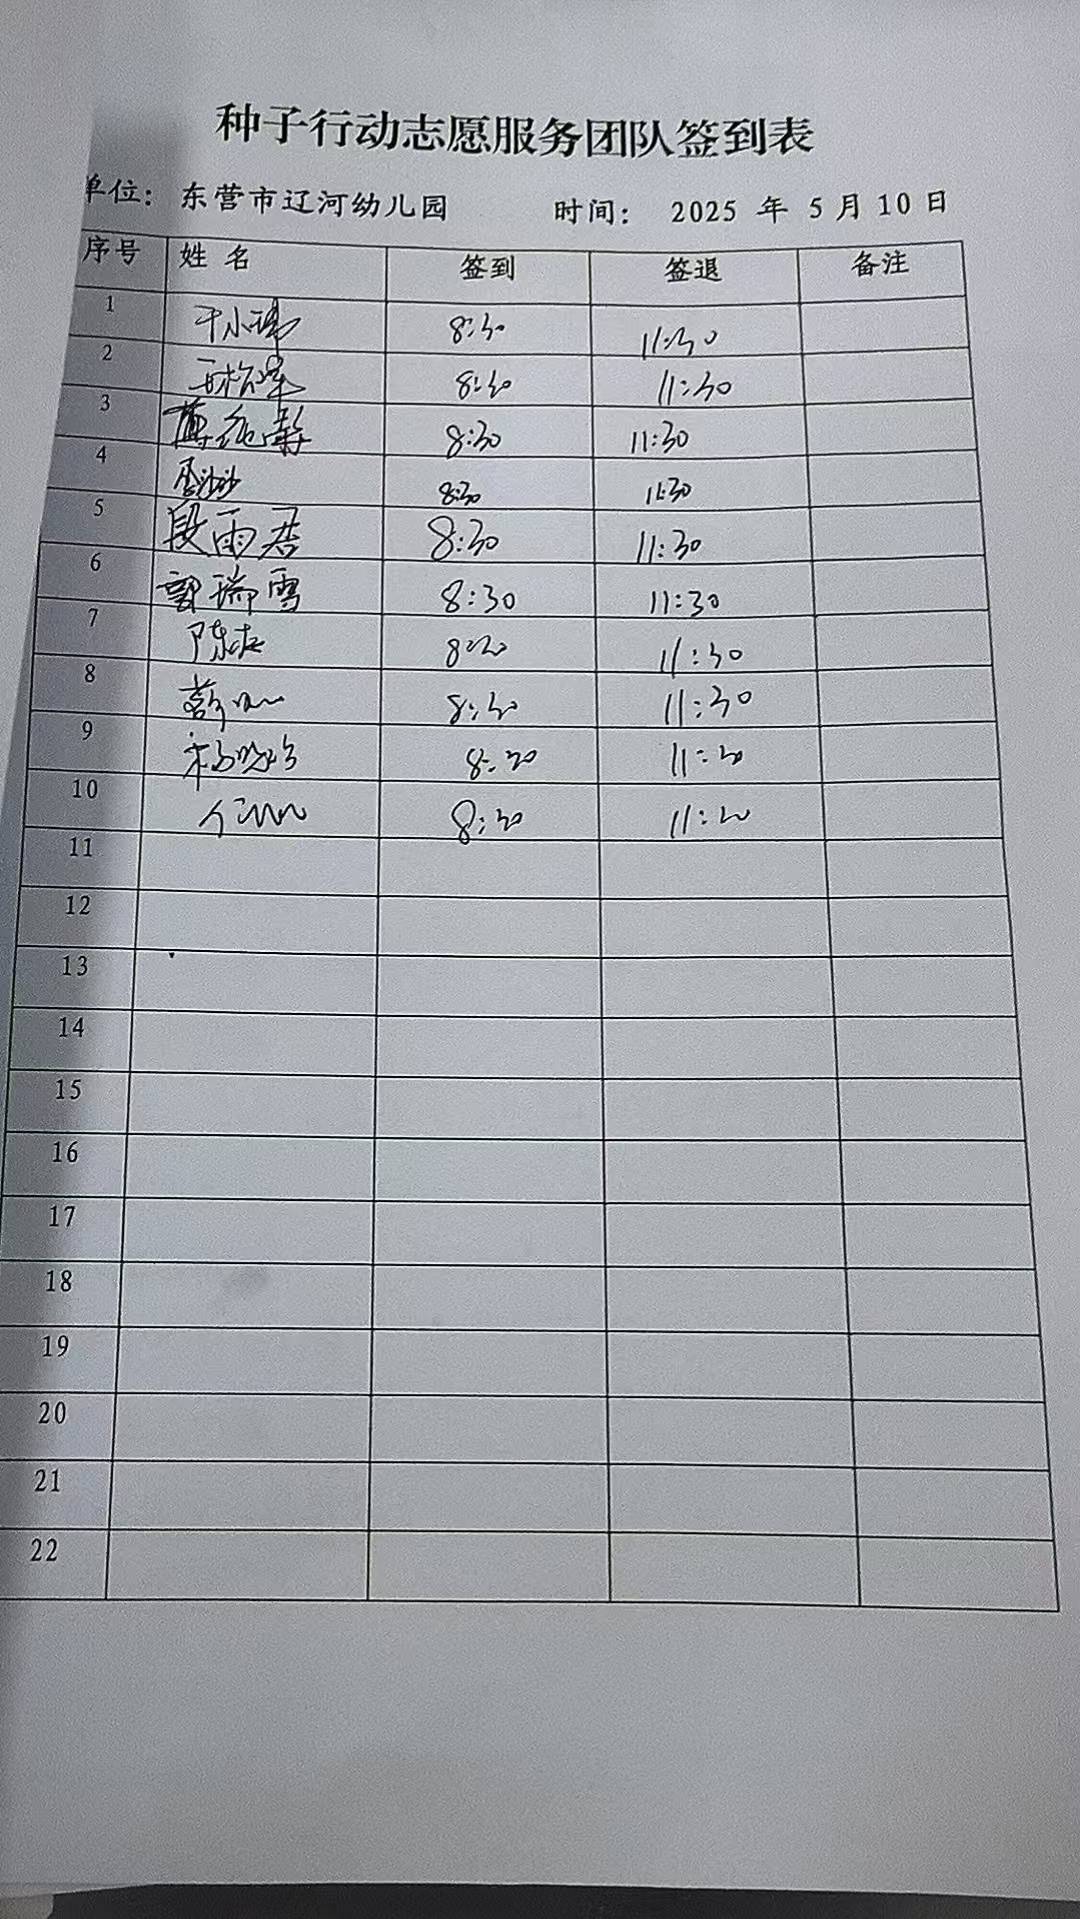 种子行动志愿服务团队签到表
单位： 东营市辽河幼儿园 时间： 2025 年 5 月 10 日
序号 姓 名 签到 签退 备注
1 8:30 11:30
2 8:30 11:30
3 8:30 11:30
4 8:30 11:30
5 段雨君 8:30 11:30
6 郭瑞雪 8:30 11:30
7 8:30 11:30
8 8:30 11:30
9 8:30 11:30
10 8:30 11:30
11
12
13
14
15
16
17
18
19
20
21
22